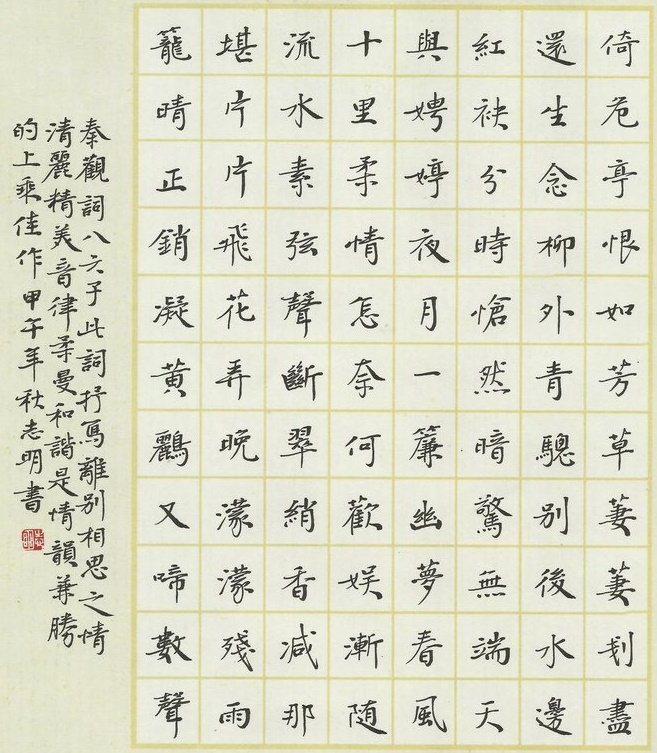 倚危亭恨如芳草萋萋刬盡
還生念柳外青驄別後水邊
紅袂分時愴然暗驚無端天
與娉婷夜月一簾幽夢春風
十里柔情怎奈何歡娱漸随
流水素弦聲斷翠綃香减那
堪片片飛花弄晚濛濛殘雨
籠晴正銷凝黄鸝又啼數聲
秦觀詞八六子此詞抒寫離别相思之情
清麗精美音律柔曼和諧是情韻兼勝
的上乘佳作甲午年秋志明書
志明